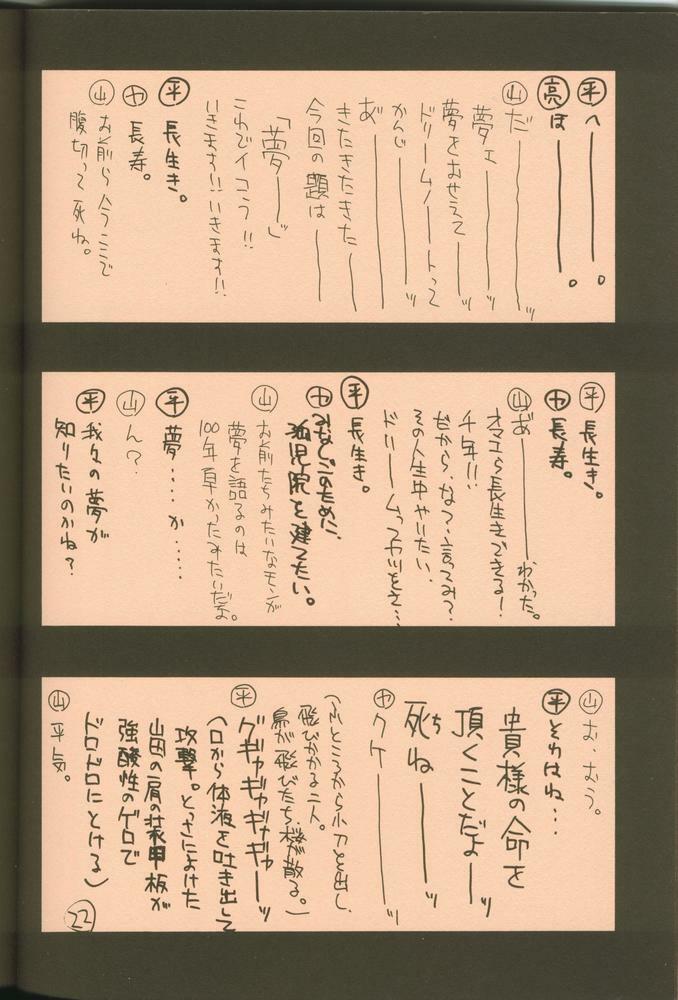 平 へ———。
亮 は———。
山 だ———ッ
夢ェ———ッ
夢をおせえて———ッ
ドリームノートって
かんじ———ッ
あ゛———
きたきたきた———
今回の題は———
「夢———」
これでイコう!!
いきます!!いきます!!
平 長生き。
ヤ 長寿。
山 お前ら今ここで
腹切って死ね。
平 長生き。
ヤ 長寿。
山 あ———わかった。
オマエら長生きできる!
千年!!
だから、な?言ってみ?
その人生中やいたい、
ドリームってヤツをさ…
平 長生き。
ヤ みなしごのために、
孤児院を建てたい。
山 お前たちみたいなモンが
夢を語るのは
100年早かったみたいだよ。
平 夢‥‥か‥‥‥
山 ん?
平 我々の夢が
知りたいのかね?
山 お、おう。
平 それはね…
貴様の命を
頂くことだよーーッ
死ちね———ッ
ヤ クケ———ッ
(ふところから小刀を出し、
飛びかかる二人。
鳥が飛びたち、桜が散る。)
平 グギャギャギャギャーッ
(口から体液を吐き出して
攻撃。とっさによけた
山田の肩の装甲板が
強酸性のゲロで
ドロドロにとける)
山 平気。
22